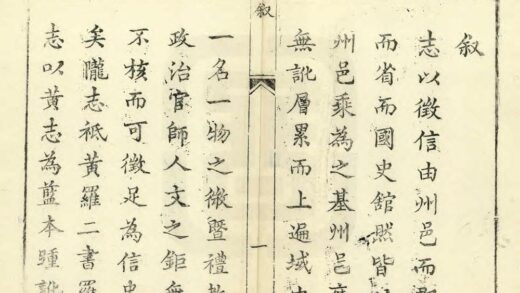 叙
志以徵信由州邑而郡
而省而國史舘然皆
州邑乘為之基州邑
無訛層累而上遍域
叙
一
一名一物之微暨禮教
政治官師人文之鉅無
不核而可徵足為信史
矣隴志祗黃羅二書羅
志以黃志為藍本踵訛